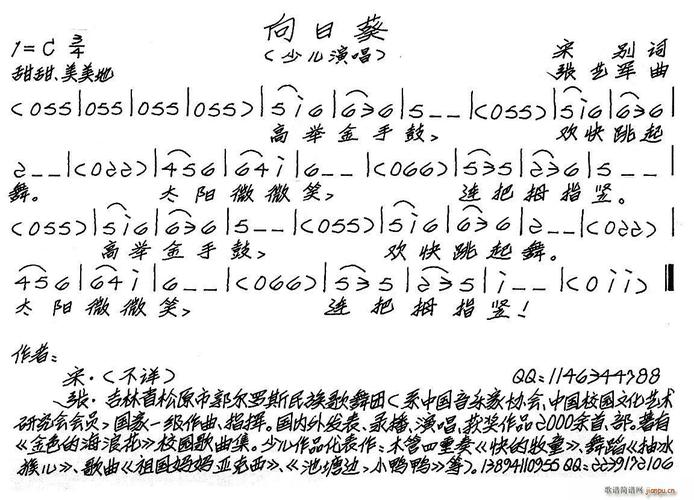 向日葵
1=C 3/4
(少儿演唱)
宋 别 词
甜甜、美美地
张艺军 曲
(055|055|055|055)|5i6|636|5--|(055)|5i6|636|
高举金手鼓, 欢快跳起
2--|(022)|456|64i|6--|(066)|535|236|5--|
舞。 太阳微微笑, 连把拇指竖。
(055)|5i6|636|5--|(055)|5i6|636|2--|(022)|
高举金手鼓, 欢快跳起舞。
456|64i|6--|(066)|535|235|i--|(0ii)‖
太阳微微笑, 连把拇指竖!
作者:
宋·(不详) QQ=1146344788
张·吉林省松原市郭尔罗斯民族歌舞团(系中国音乐家协会、中国校园文化艺术
研究会会员)国家一级作曲、指挥。国内外发表、录播、演唱、获奖作品2000余首、部。著有
《金色的海浪花》校园歌曲集。少儿作品代表作:木管四重奏《快的牧童》、舞蹈《抽水
猴儿》、歌曲《祖国妈妈亚克西》、《池塘边,小鸭鸭》等)。13894110955 QQ=2239172106
歌谱简谱网
jianpu.cn